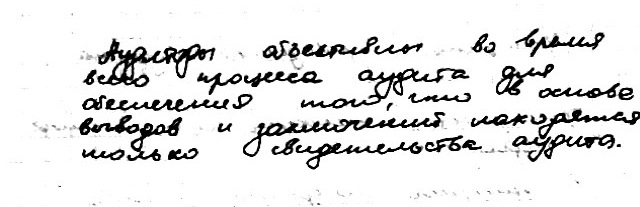 Аудиторы объективны во время
всего процесса аудита для
обеспечения того, что в основе
выводов и заключений находятся
только свидетельства аудита.